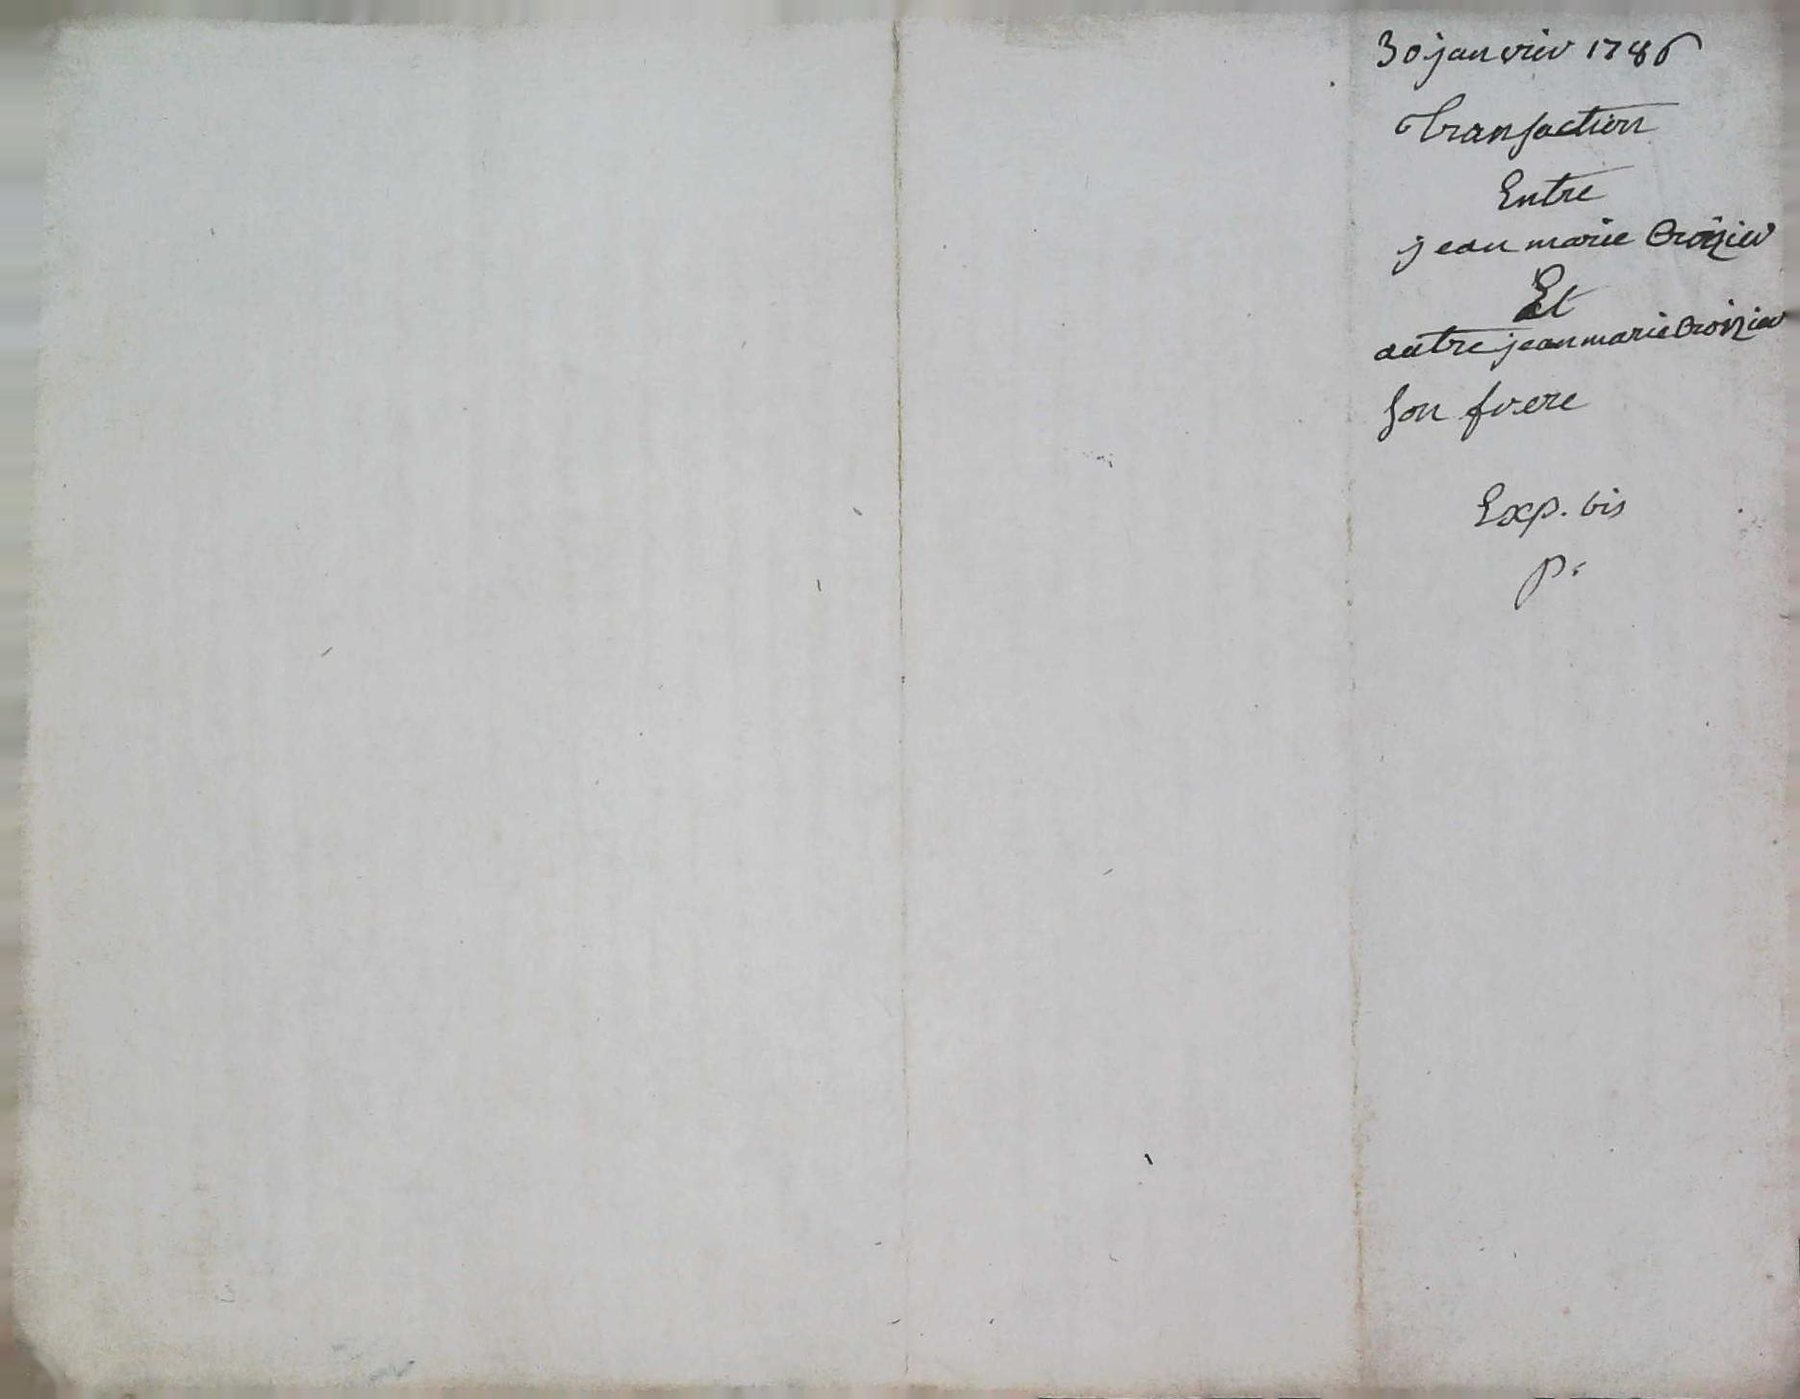 30 janvier 1786
Transaction
Entre
jean marie Croizier
Et
autre jean marie Croizier
son frere
Exp. bis
p.